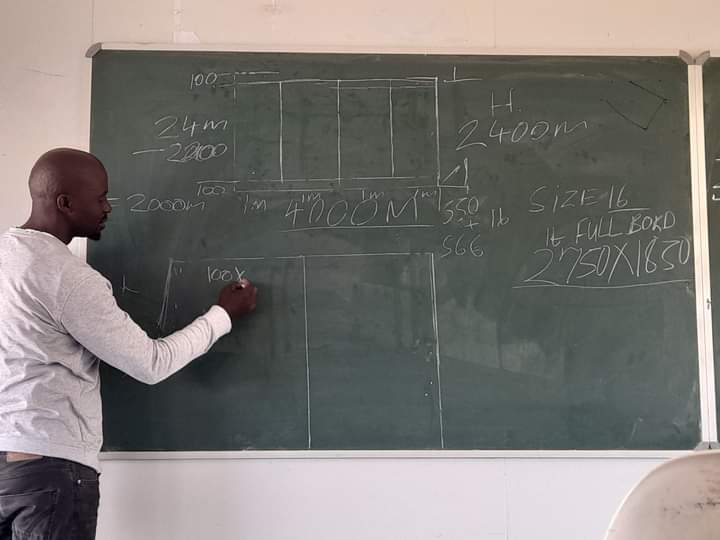 100
H.
24m
2400m
- 2200
100
= 2000m
1m 1m 1m 1m
4000M
550
+ 16
566
SIZE 16
16 FULL BORD
2750X1830
100x